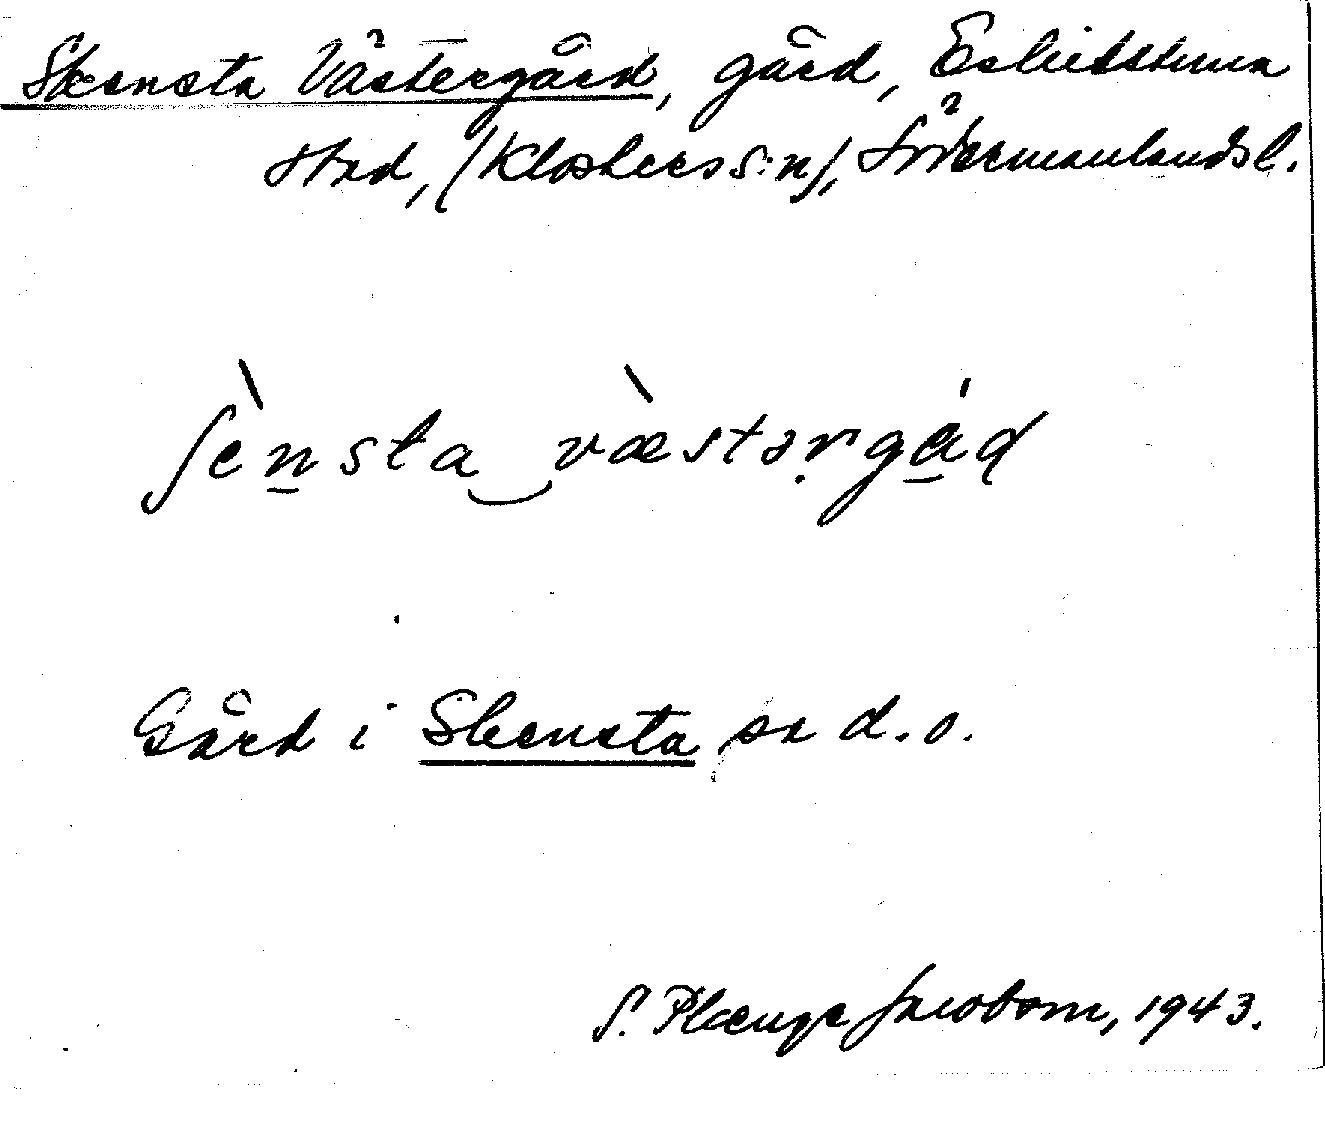 Skensta Västergård, gård, Eskilstuna
stad, (Klosters s:n), Södermanlands l.
ʃènsta‿væ̀stərgɑ́ɖ
Gård i Skensta se d.o.
S. Plænge Jacobson, 1943.